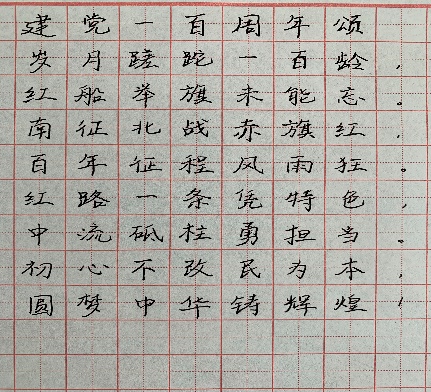 建党一百周年颂
岁月蹉跎一百龄，
红船举旗未能忘。
南征北战赤旗红，
百年征程风雨狂。
红路一条凭特色，
中流砥柱勇担当。
初心不改民为本，
圆梦中华铸辉煌！